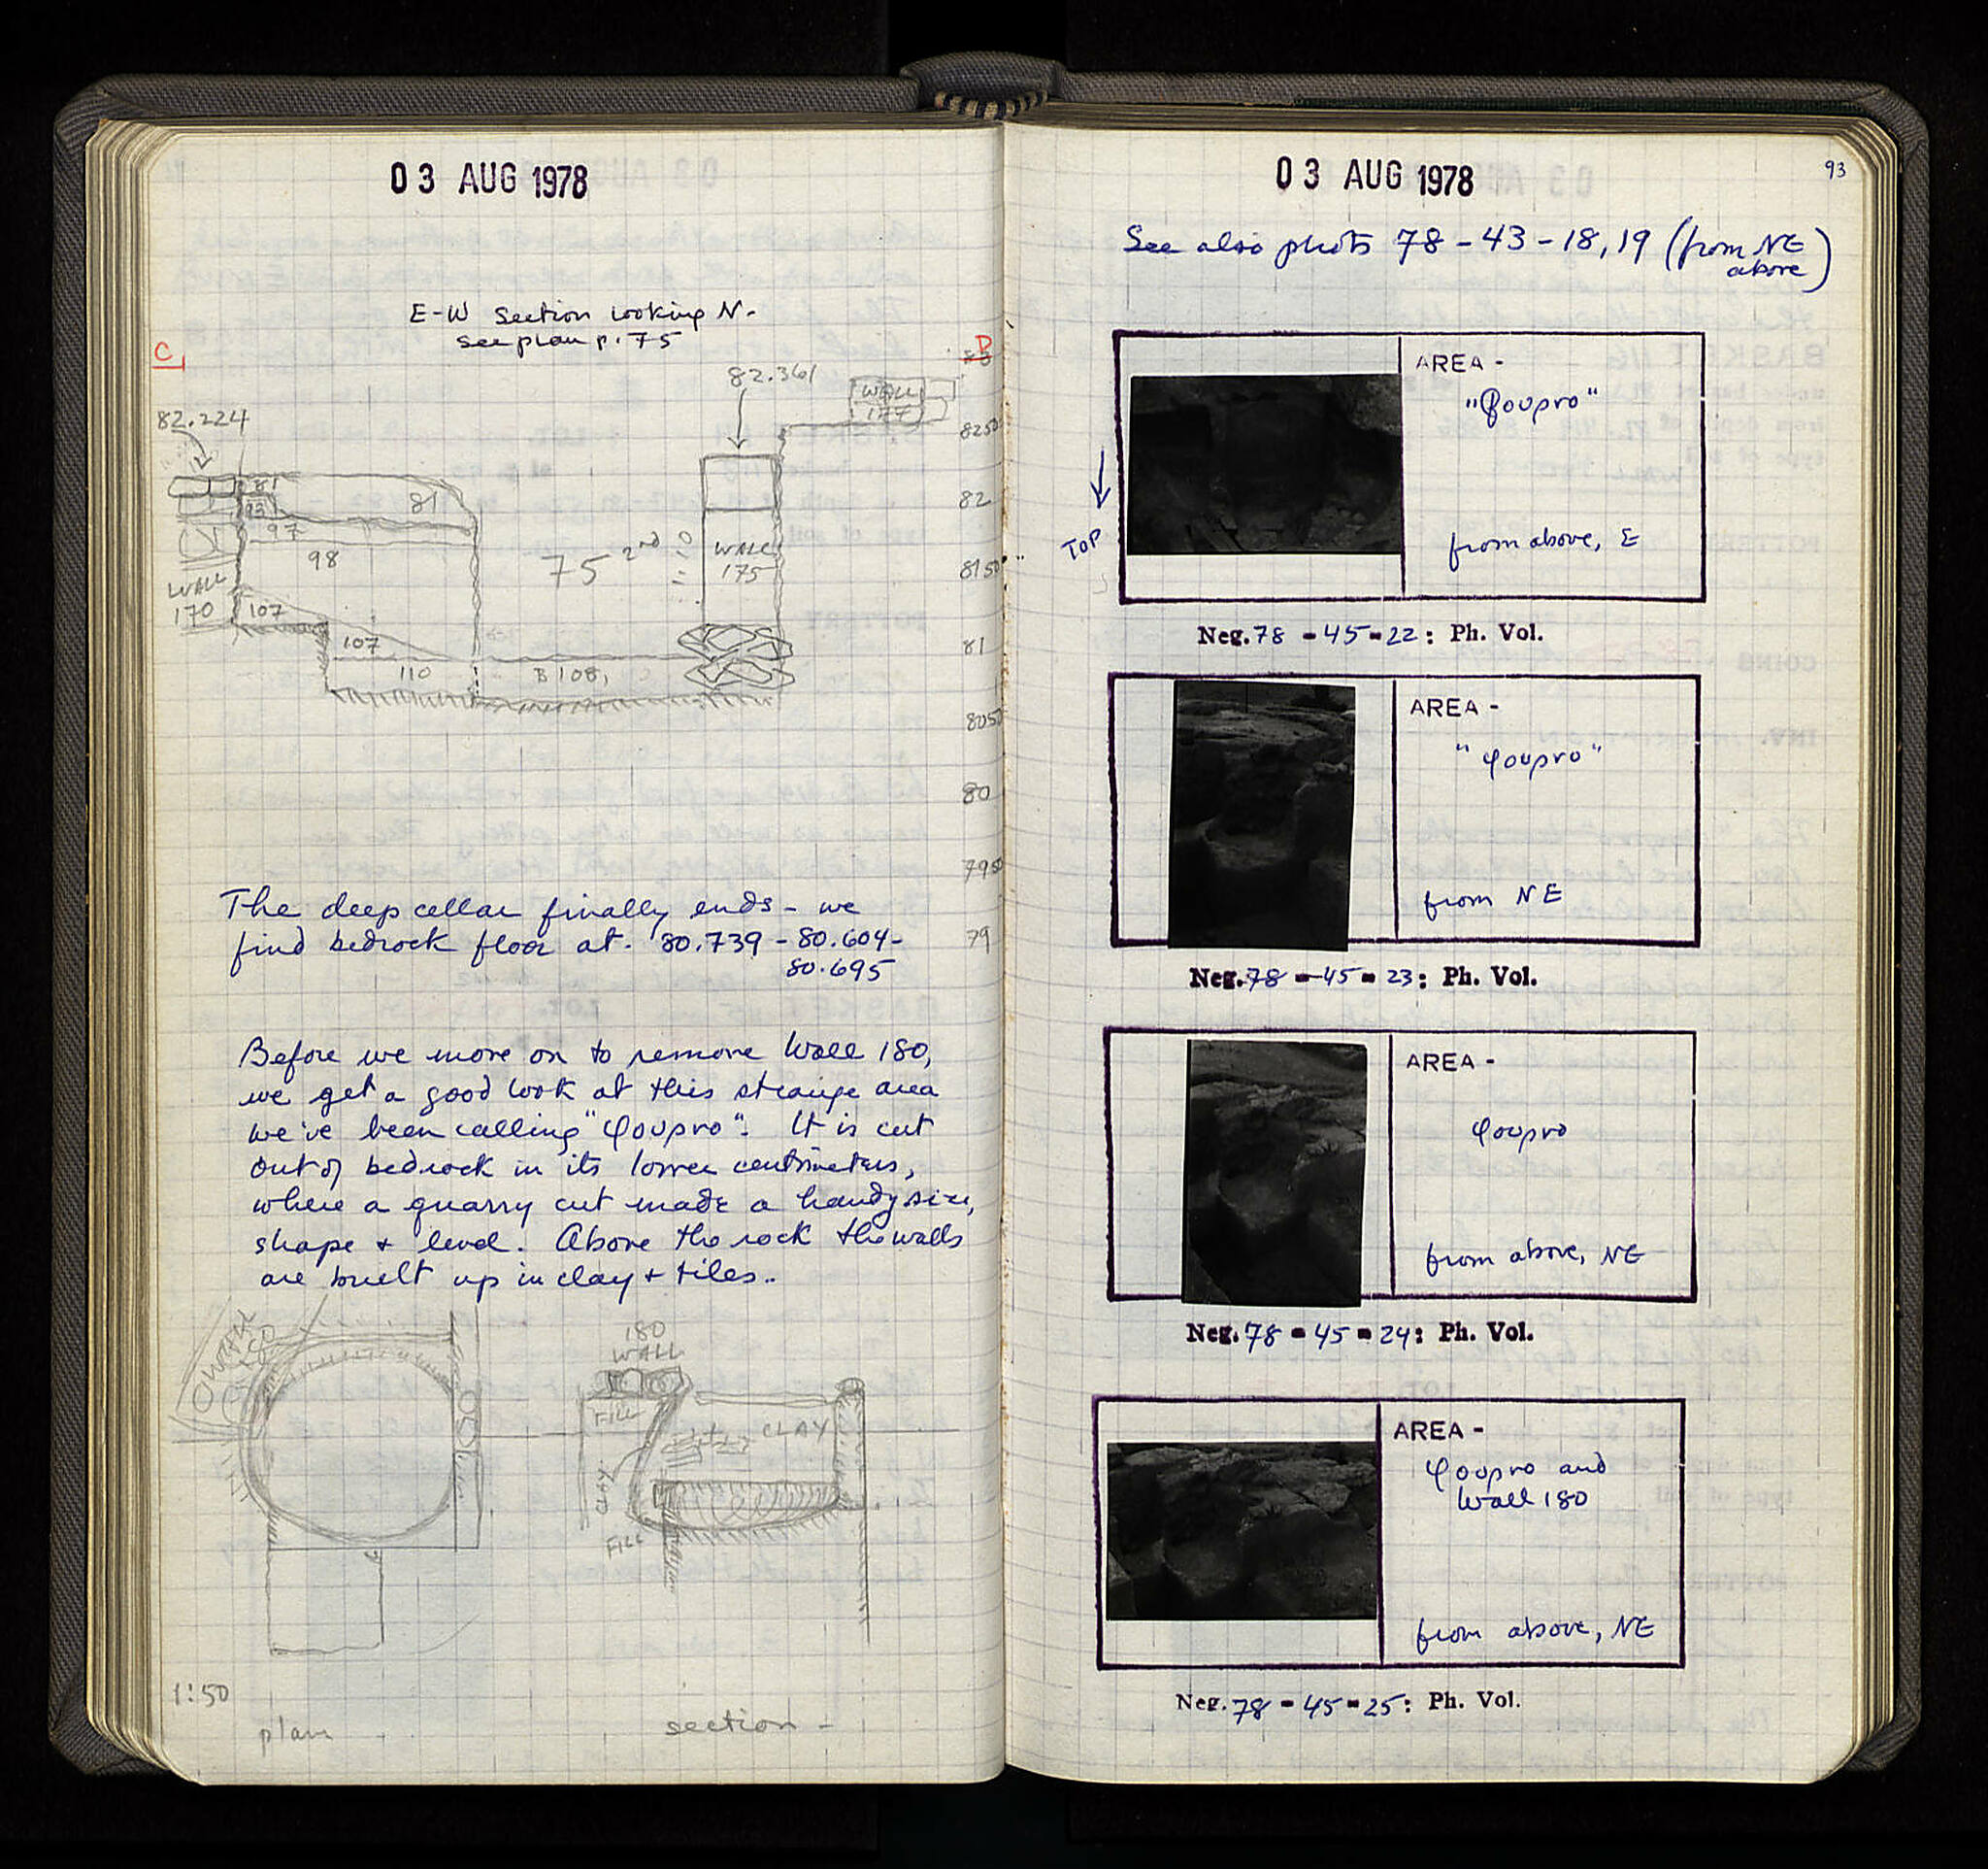 03 AUG 1978
E-W Section looking N.
see plan p. 75
C
82.361
WALL
174
82.224
8250
81
81
82
93
97
98
75 2nd
WALL
175
8150
WALL
170
107
107
81
110
B 108
8050
80
7950
The deep cellar finally ends - we
find bedrock floor at. 80.739 - 80.604-
80.695
79
Before we move on to remove Wall 180,
we get a good look at this strange area
we've been calling "φουρνο". It is cut
out of bedrock in its lower centimeters,
where a quarry cut made a handy size,
shape + level. Above the rock the walls
are built up in clay + tiles.
WALL
180
180
WALL
FILL
CLAY
CLAY
FILL
1:50
plan
section -
03 AUG 1978
93
See also photos 78-43-18,19 (from NE
above)
AREA -
"φουρνο"
from above, E
TOP
Neg. 78-45-22: Ph. Vol.
AREA -
"φουρνο"
from NE
Neg. 78-45-23: Ph. Vol.
AREA -
φουρνο
from above, NE
Neg. 78-45-24: Ph. Vol.
AREA -
φουρνο and
Wall 180
from above, NE
Neg. 78-45-25: Ph. Vol.